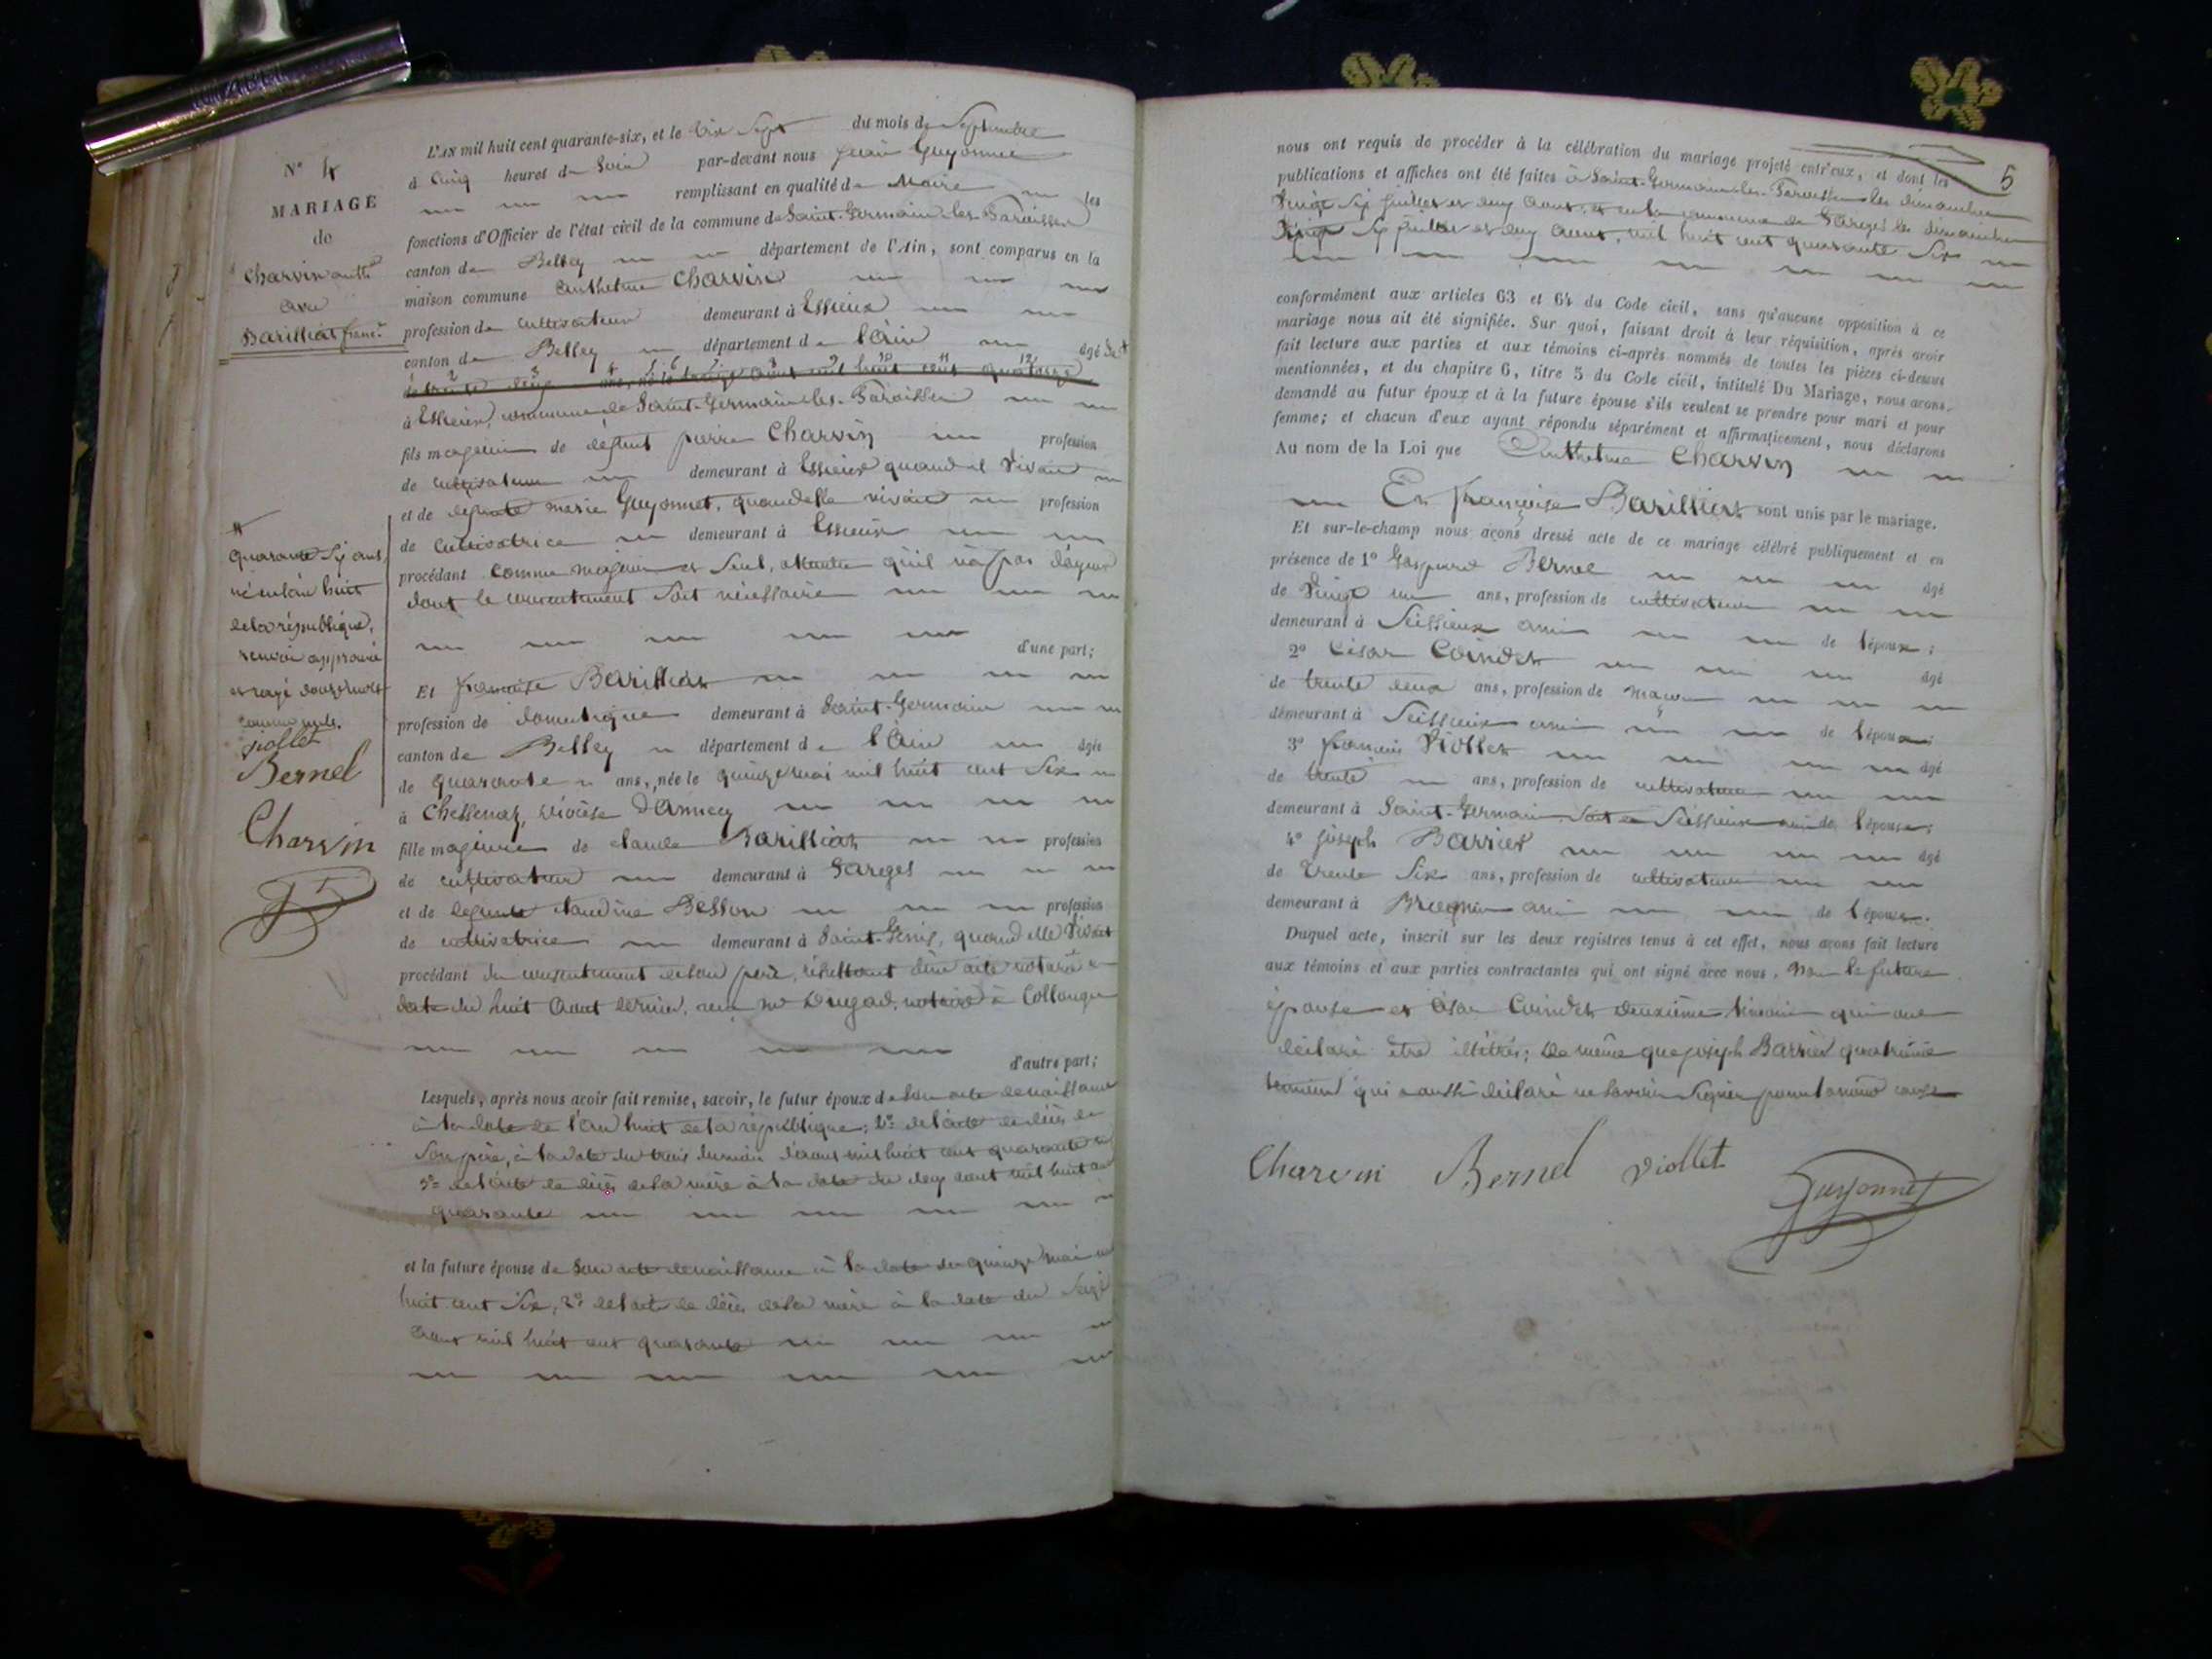 N° 4
MARIAGE
de
Charvin anthe
avec
Barilliat franc.se
L'AN mil huit cent quarante-six, et le dix Sept du mois de Septembre
à Cinq heures du Soir par-devant nous Jean Guyonnet
remplissant en qualité de Maire les
fonctions d'Officier de l'état civil de la commune de Saint-Germain-les-Paroisses
canton de Belley département de l'Ain, sont comparus en la
maison commune Anthelme Charvin
profession de cultivateur demeurant à Essieux
canton de Belley département de l'Ain âgé de #
de trente deux ans, né le treize août mil huit cent quatorze
à Essieux, commune de Saint-Germain-les-Paroisses
fils majeur de défunt pierre Charvin profession
de cultivateur demeurant à Essieux quand il vivait
et de défunte marie Guyonnet, quand elle vivait profession
de cultivatrice demeurant à Essieux
procédant comme majeur et seul, attendu qu'il n'a pas d'ayeux
dont le consentement soit nécessaire
d'une part;
#
quarante six ans,
né en l'an huit
de la république,
renvoi approuvé
et rayé douze mots
comme nuls.
Viollet
Bernel
Charvin
Et françoise Barilliat
profession de domestique demeurant à Saint-Germain
canton de Belley département de l'Ain âgée
de quarante ans, née le quinze mai mil huit cent six
à Chessenaz, diocèse d'Annecy
fille majeure de claude Barilliat profession
de cultivateur demeurant à Farges
et de défunte claudine Besson profession
de cultivatrice demeurant à Saint-Genis, quand elle vivait
procédant du consentement de son père, résultant d'un acte notarié en
date du huit Août dernier, reçu me Dugad, notaire à Collonges
d'autre part;
Lesquels, après nous avoir fait remise, savoir, le futur époux de son acte de naissance
à la date de l'an huit de la république; 2° de l'acte de décès de
son père, à la date du trois du mois d'août mil huit cent quarante
3° de l'acte de décès de sa mère à la date du deux août mil huit cent
quarante
et la future épouse de Son acte de naissance à la date du quinze mai mil
huit cent six, 2° de l'acte de décès de sa mère à la date du Seize
Août mil huit cent quarante
5
nous ont requis de procéder à la célébration du mariage projeté entr'eux, et dont les
publications et affiches ont été faites à Saint-Germain-les-Paroisses les dimanches
vingt six juillet et deux Août, et en la commune de Farges les dimanches
vingt six juillet et deux Août, mil huit cent quarante six
conformément aux articles 63 et 64 du Code civil, sans qu'aucune opposition à ce
mariage nous ait été signifiée. Sur quoi, faisant droit à leur réquisition, après avoir
fait lecture aux parties et aux témoins ci-après nommés de toutes les pièces ci-dessus
mentionnées, et du chapitre 6, titre 5 du Code civil, intitulé Du Mariage, nous avons
demandé au futur époux et à la future épouse s'ils veulent se prendre pour mari et pour
femme; et chacun d'eux ayant répondu séparément et affirmativement, nous déclarons
Au nom de la Loi que Anthelme Charvin
Et françoise Barilliat sont unis par le mariage.
Et sur-le-champ nous avons dressé acte de ce mariage célébré publiquement et en
présence de 1° Gaspard Bernel âgé
de Vingt un ans, profession de cultivateur
demeurant à Seissieux ami de l'époux;
2° César Coindet âgé
de trente deux ans, profession de maçon
demeurant à Seissieux ami de l'époux;
3° françois Viollet âgé
de trente ans, profession de cultivateur
demeurant à Saint-Germain Soit à Seissieux ami de l'épouse;
4° joseph Barrier âgé
de trente Six ans, profession de cultivateur
demeurant à Brégnier ami de l'épouse.
Duquel acte, inscrit sur les deux registres tenus à cet effet, nous avons fait lecture
aux témoins et aux parties contractantes qui ont signé avec nous, non la future
épouse et César Coindet deuxième témoin qui ont
déclaré être illitérés; de même que joseph Barrier quatrième
témoin qui a aussi déclaré ne savoir signer pour la même cause
Charvin Bernel Viollet
Guyonnet